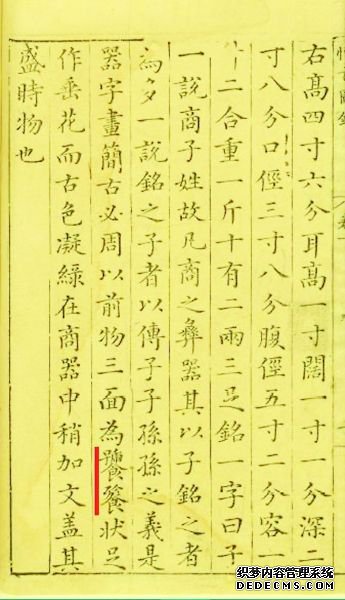 右髙四寸六分耳髙一寸闊一寸一分深二
寸八分口徑三寸八分腹徑五寸二分容一
升二合重一斤十有二兩三足銘一字曰子
一說商子姓故凡商之彝器其以子銘之者
為多一說銘之子者以傳子子孫孫之義是
器字畫簡古必周以前物三面為饕餮狀足
作垂花而古色凝綠在商器中稍加文盖其
盛時物也
织梦内容管理系统
DEDECMS.COM